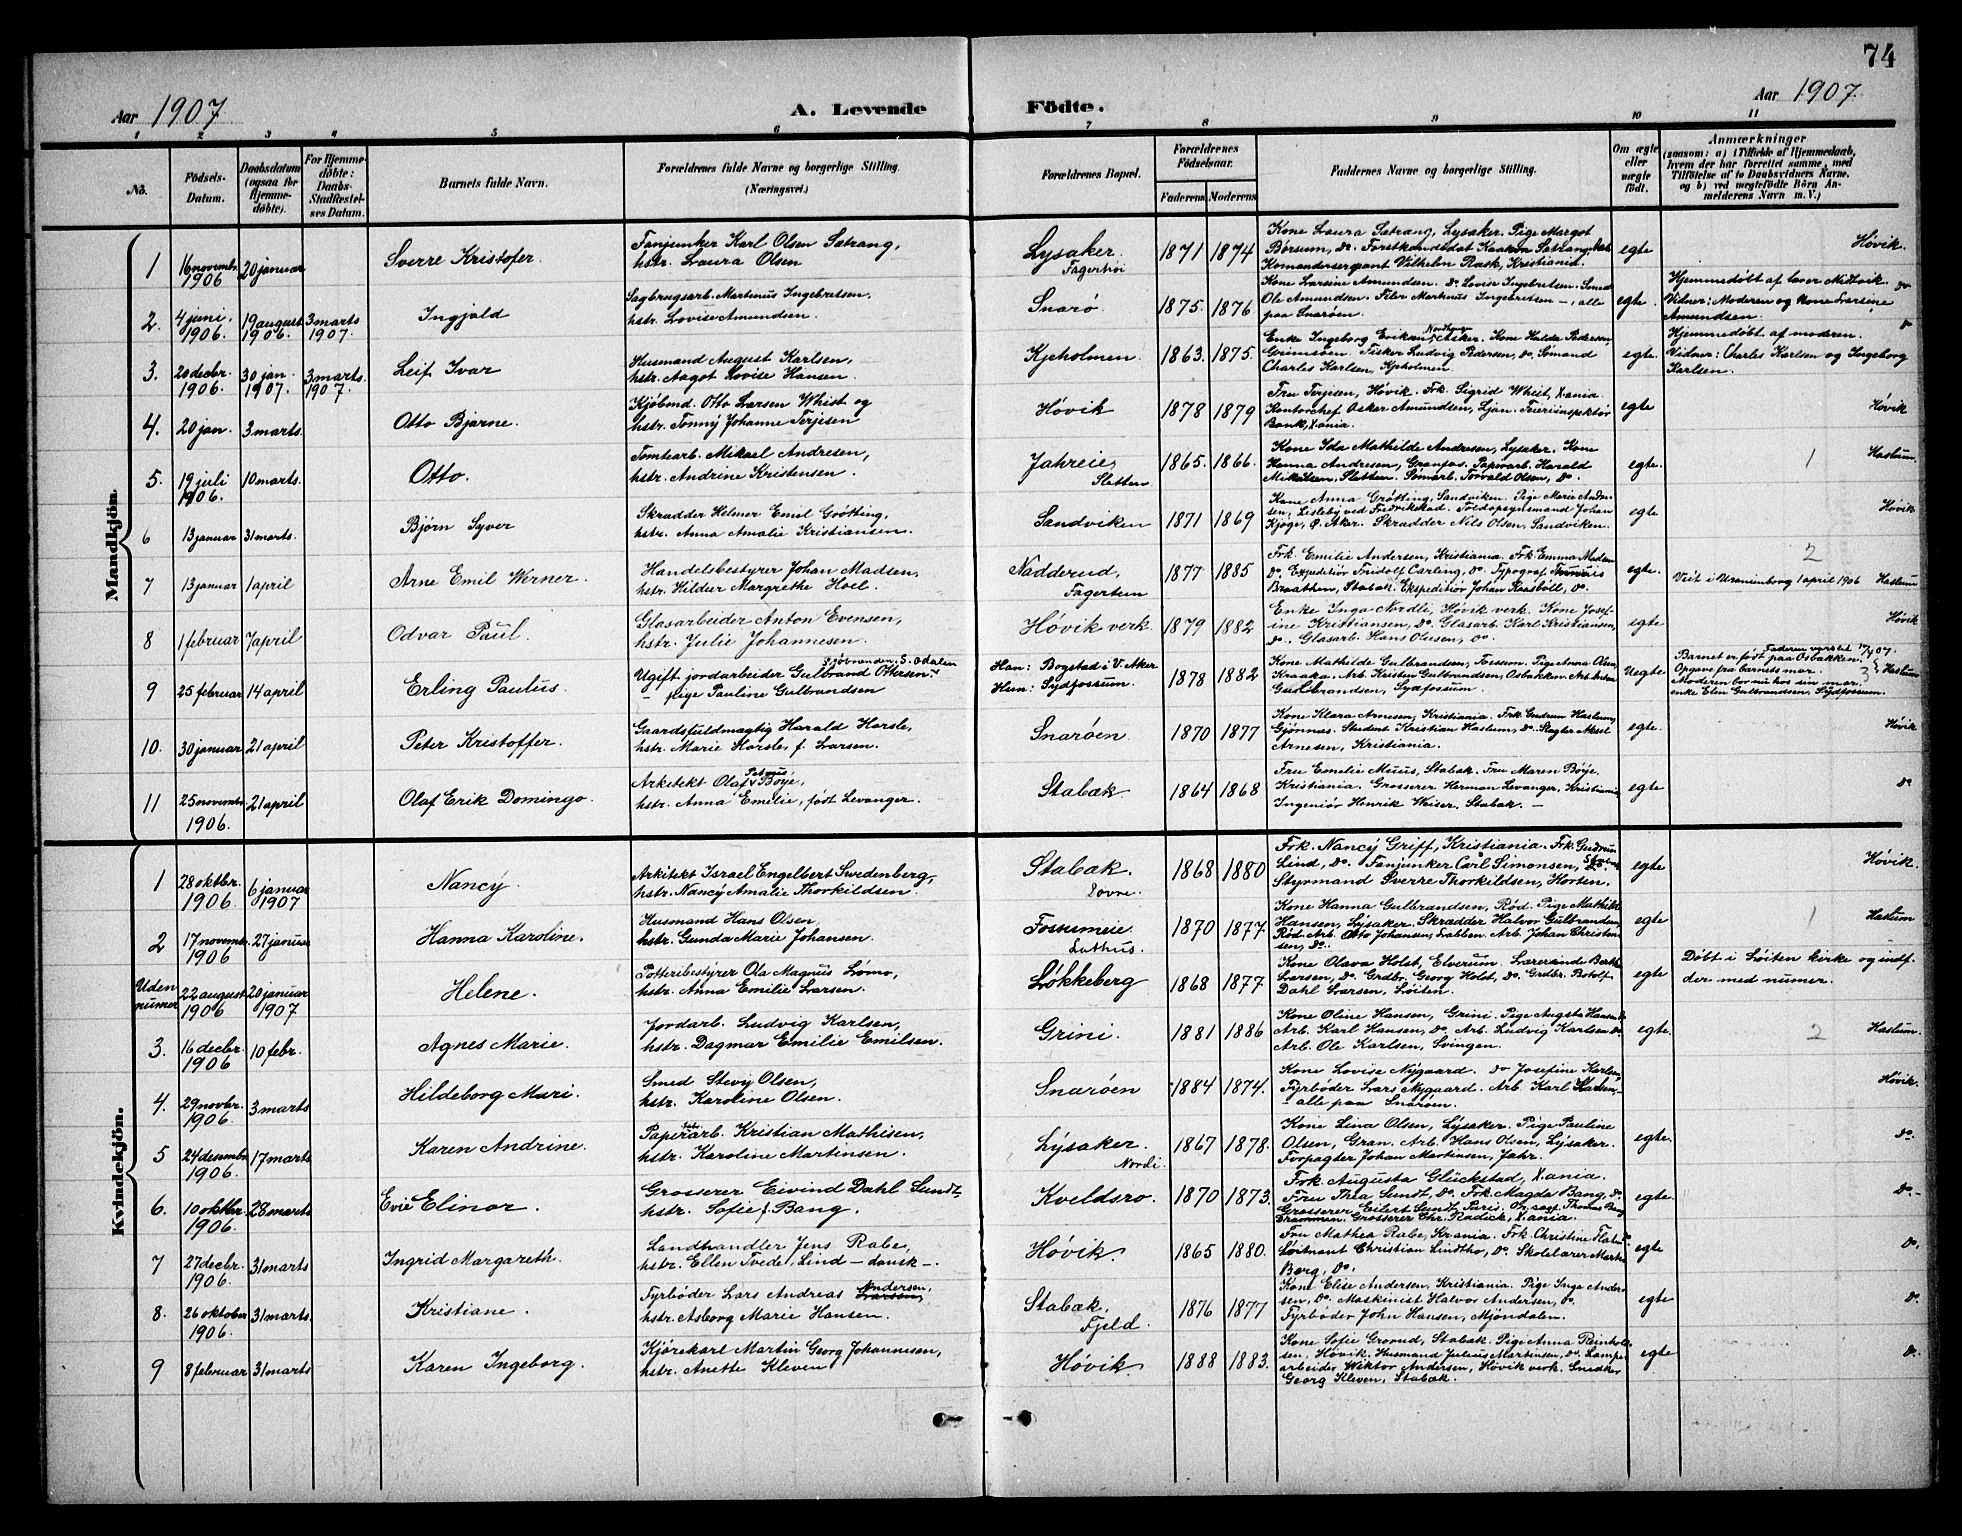 74
Aar 1907.
A. Levende Födte.
Aar 1907.
1 2 3 4 5 6 7 8 9 10 11
No.
Födsels-
Datum.
Daabsdatum
(ogsaa for
Hjemme-
döbte).
For Hjemme-
döbte:
Daabs-
Stadfæstel-
ses Datum.
Barnets fulde Navn.
Forældrenes fulde Navne og borgerlige Stilling.
(Næringsvei.)
Forældrenes Bopæl.
Forældrenes
Födselsaar.
Faderens Moderens
Faddernes Navne og borgerlige Stilling.
Om ægte
eller
uægte
födt.
Anmærkninger
(saasom: a) i Tilfælde af Hjemmedaab,
hvem der har forrettet samme, med
Tilföielse af to Daabsvidners Navne,
og b) ved uægtefödte Börn An-
melderens Navn m. V.)
Mandkjön.
1 16 novembr. 1906 20 januar
Sverre Kristofer.
Fanjunker Karl Olsen Sætrang,
hstr. Laura Olsen
Lysaker.
Fagerhöi
1871 1874
Kone Laura Sætrang, Lysaker. Pige Margot
Börsum, do. Forstkandidat Haakon Sætrang,
Komandersergant Vilhelm Rask, Kristiania.
egte
Høvik.
2. 4 juni 1906. 19 august 1906. 3 marts 1907.
Ingjald
Sagbrugsarb. Martinus Ingebretsen.
hstr. Lovise Amundsen.
Snarø
1875. 1876
Kone Larsine Amundsen. do Lovise Ingebretsen. Smed
Ole Amundsen. Filer Markus Ingebretsen –, alle
paa Snarøen.
egte.
Hjemmedøbt af
Vidner: Moderen og Kone Larsine
Amundsen.
do
3. 20 decbr. 1906. 30 jan. 1907. 3 marts. 1907.
Leif Ivar
Husmand August Karlsen,
hstr. Aagot Lovise Hansen.
Kjeholmen.
1863. 1875.
Enke Ingeborg Eriksen, Asker. Kone Hulda Pedersen,
Grimsøen. Fisker Ludvig Pedersen, do. Sømand
Charles Karlsen, Kjeholmen.
egte.
Hjemmedøbt af moderen.
Vidner: Charles Karlsen og Ingeborg
Karlsen.
do
4. 20 jan. 3 marts.
Otto Bjarne.
Kjøbmd. Otto Larsen Whist og
hstr. Tonny Johanne Terjesen
Høvik
1878 1879
Fru Terjesen, Høvik. Frk. Sigrid Whist, Xania.
Kontorchef Oskar Amundsen, Ljan. Meieriinspektör
Bank, Xania.
egte
Høvik
5. 19 juli 1906. 10 marts.
Otto.
Tomtearb. Mikael Andresen,
hstr. Andrine Kristensen.
Jahreie,
Sletten
1865. 1866.
Kone Ida Mathilde Andresen, Lysaker. Kone
Hanna Andresen, Granfos. Papirarb. Harald
Mikalsen, Sletten. Tomtarb. Torvald Olsen, do.
egte.
1
Haslum.
6 13 januar 31 marts.
Bjørn Syver
Skrædder Helmer Emil Grötting,
hstr. Anna Amalie Kristiansen.
Sandviken
1871 1869
Kone Anna Grötting, Sandviken. Pige Marie Ander-
sen, Lisleby ved Fredrikstad. Toldopsynsmand Johan
Kjøge, Ø. Aker. Skrædder Nils Olsen, Sandviken.
egte
Høvik
7 13 januar 1 april
Arne Emil Werner.
Handelsbestyrer Johan Madsen,
hstr. Hildur Margrethe Hoel.
Nadderud,
Fagertun
1877 1885
Frk. Emilie Andersen, Kristiania. Frk Emma Madsen
do. Expeditiør Fridolf Carling, do. Typograf
Braathen, Stabæk. Ekspeditiør Johan Kaasböll, do.
egte.
2
Viet i Uranienborg 1 april 1906 Haslum
8 1 februar 7 april
Odvar Paul.
Glasarbeider Anton Evensen,
hstr. Julie Johannesen.
Høvik verk.
1879 1882
Enke Inga Nordli, Høvik verk. Kone Josef-
ine Kristiansen, do. Glasarb. Karl Kristiansen,
do., Glasarb. Hans Olsen, do.
egte
Høvik
9 25 februar 14 april
Erling Paulus.
Ugift jordarbeider Gulbrand Ottersen
S. Odalen
pige Pauline Gulbrandsen
Han: Bogstad i V. Aker
Hun: Sydfossum.
1878 1882
Kone Mathilde Gulbrandsen, Fossum. Pige Anna Olsen,
Kraaka. Arb. Kristen Gulbrandsen, Osbakken. Arb. Anton
Gulbrandsen, Sydfossum.
Uegte
Barnet er født paa Osbakken.
Opgave fra barnets mor.
Moderen bor nu hos sin mor,
enke Elen Gulbrandsen, Sydfossum.
3
Haslum
10. 30 januar 21 april
Peter Kristoffer.
Gaardsfuldmægtig Harald Horsle,
hstr. Marie Horsle, f. Larsen.
Snarøen.
1870 1877
Kone Klara Arnesen, Kristiania. Frk. Gudrun Haslum,
Gjønnes. Student Kristian Haslum, do. Slagter Aksel
Arnesen, Kristiania.
egte.
Høvik
11 25 novembr. 1906. 21 april
Olaf Erik Domingo.
Arkitekt Olaf Petrus Boye,
hstr. Anna Emelie, født Levanger.
Stabæk
1864 1868
Fru Emelie Muus, Stabæk. Fru Maren Böye,
Kristiania. Grosserer Herman Levanger, Kristiania,
Ingeniør Henrik Weiser, Stabæk. –
egte
do
Kvindekjön.
1 28 oktbr. 1906. 6 januar 1907
Nancy.
Arkitekt Israel Engelbert Swedenberg,
hstr. Nancy Amalie Thorkildsen.
Stabæk.
Lovre.
1868 1880
Frk. Nancy Griff, Kristiania. Frk. Gudrun
Lind, do. Fanjunker Carl Simonsen,
Styrmand Sverre Thorkildsen, Horten.
egte
Høvik.
2 17 novembr. 1906 27 januar
Hanna Karoline.
Husmand Hans Olsen,
hstr. Gunda Marie Johansen.
Fossumeie.
Luthus.
1870 1877
Kone Hanna Gulbrandsen, Rød. Pige Mathilde
Hansen, Lysaker. Skrædder Halvor Gulbrandsen,
Rød. Arb. Otto Johansen, Labben. Arb. Johan Christen-
sen, do.
egte
1
Haslum
Uden numer 22 august 1906 20 januar 1907
Helene.
Potteribestyrer Ola Magnus Lømo,
hstr. Anna Emilie Larsen.
Løkkeberg
1868 1877
Kone Olava Holst, Elverum. Lærerinde Berthe
Larsen, do. Grdbr. Georg Holst, do. Grdbr. Botolf
Dahl Larsen, Løiten.
egte
Döbt i Løiten kirke og indf.
der med numer.
3. 16 decbr. 1906 10 febr.
Agnes Marie.
Jordarb. Ludvig Karlsen,
hstr. Dagmar Emilie Emilsen.
Grini
1881 1886
Kone Oline Hansen, Grini. Pige Augsta Hansen
Arb. Karl Hansen, do. Arb. Ludvig Karlsen do.
Arb. Ole Karlsen, Svingen.
egte.
2
Haslum.
4. 29 novbr. 1906 3 marts
Hildeborg Mari.
Smed Stevy Olsen,
hstr. Karoline Olsen.
Snarøen
1884 1874.
Kone Lovise Nygaard. do Josefine Karlsen,
Fyrbøder Lars Nygaard. Arb. Karl Karlsen,
– alle paa Snarøen.
egte.
Høvik.
5 24 desembr. 1906. 17 marts
Karen Andrine.
Papirarb. Kristian Mathisen,
hstr. Karoline Martinsen.
Lysaker.
Nordli.
1867 1878.
Kone Lina Olsen, Lysaker. Pige Pauline
Olsen, Gran. Arb. Hans Olsen, Lysaker.
Forpagter Johan Martinsen, Jahr.
egte.
do.
6. 10 oktbr. 1906. 28 marts
Evie Elinor.
Grosserer Eivind Dahl Sundt,
hstr. Sofie f. Bang.
Kveldsro.
1870 1873.
Frk. Augusta Glückstad, Xania.
Fru Thea Sundt, do. Frk. Magda Bang, do.
Grosserer Eilert Sundt, Paris. Thomas Bang
Drammen. Grosserer Chr. Radick, Xania.
egte.
do. –
7 27 decbr. 1906. 31 marts
Ingrid Margareth.
Landhandler Jens Rabe,
hstr. Ellen Tvede, Lind – dansk –.
Høvik
1865 1880.
Fru Mathea Rabe, Krania. Frk. Christine
Løitnant Christian Lindtho, do. Skolelærer
Berg, do.
egte
do.
8. 26 oktober 1906. 31 marts.
Kristiane.
Fyrbøder Lars Andreas Andersen,
hstr. Asborg Marie Hansen.
Stabæk,
Fjeld.
1876 1877
Kone Elise Andersen, Kristiania. Pige Inga Ander-
sen, do. Maskinist Halvor Andersen, do.
Fyrbøder John Hansen, Mjøndalen.
egte
do.
9 8 februar 31 marts
Karen Ingeborg.
Kjørekarl Martin Georg Johannesen,
hstr. Anette Kleven
Høvik
1888 1883.
Kone Sofie Grorud, Stabæk. Pige Anna Reinholt-
sen, Høvik. Husmand Julius Martinsen, do. Lampe-
arbeider Wiktor Andersen, Høvik verk. Snedker
Georg Kleven, Stabæk.
egte
do.